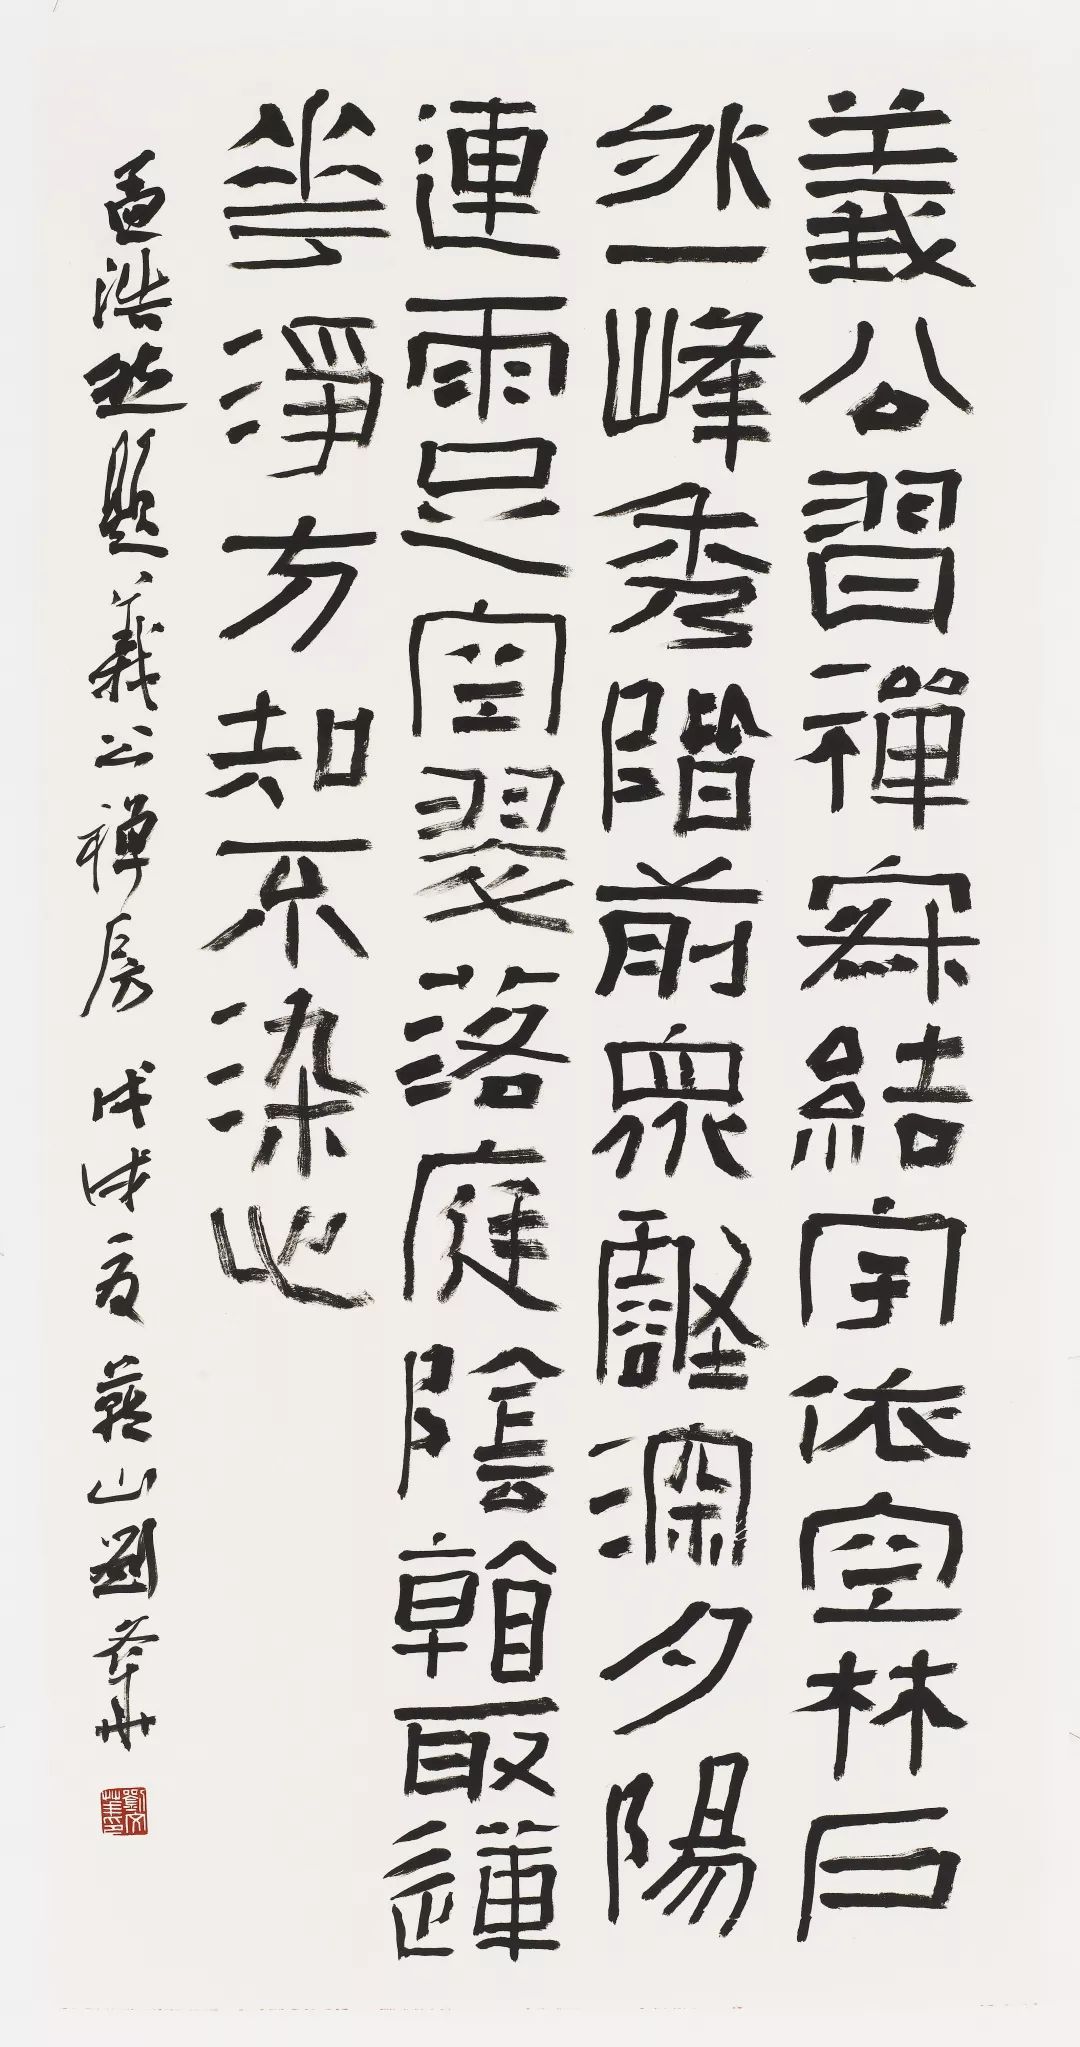 義公習禪寂結宇依空林戶
外一峰秀階前眾壑深夕陽
連雨足空翠落庭陰看取蓮
華淨方知不染心
孟浩然題義公禪房 戊戌夏 薊山劉文華
劉文華印